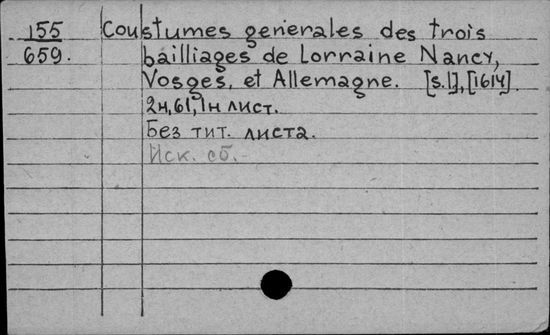 155 Coustumes generales des trois
659. bailliages de Lorraine Nancy,
Vosges, et Allemagne. [s.l], [1614].
2н, 61, 1н лист.
Без тит. листа.
Иск. сб.